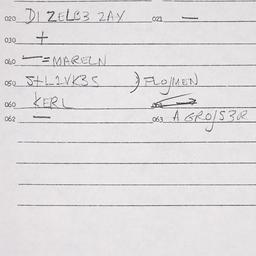 020 DI ZELB3 ZAY 021 —
030 +
040 — = MARELN
050 S+L1VK3S ) FLOJMEN
060 KERL
062 — 063 A GROJS3R